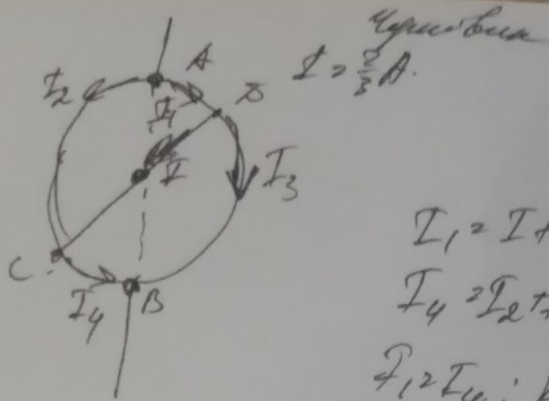 Черновик
I = 2/3 A.
A
I₂
I₁
D
I
I₃
C
I₄
B
I₁ = I +
I₄ = I₂ +
I₁ = I₄ ;